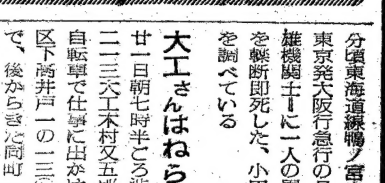 分頃東海道線鴨ノ宮
東京発大阪行急行の
雄機関士―に一人の男
を轢断即死した、小田
を調べている
大工さんはねら
廿一日朝七時半ごろ
二一三大工木村又五
自転車で仕事に出かけ
区下高井戸一の一三
で、後からきた同町